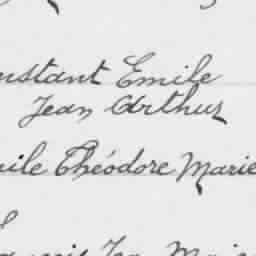 nstant Emile
Jean Arthur
ile Théodore Marie